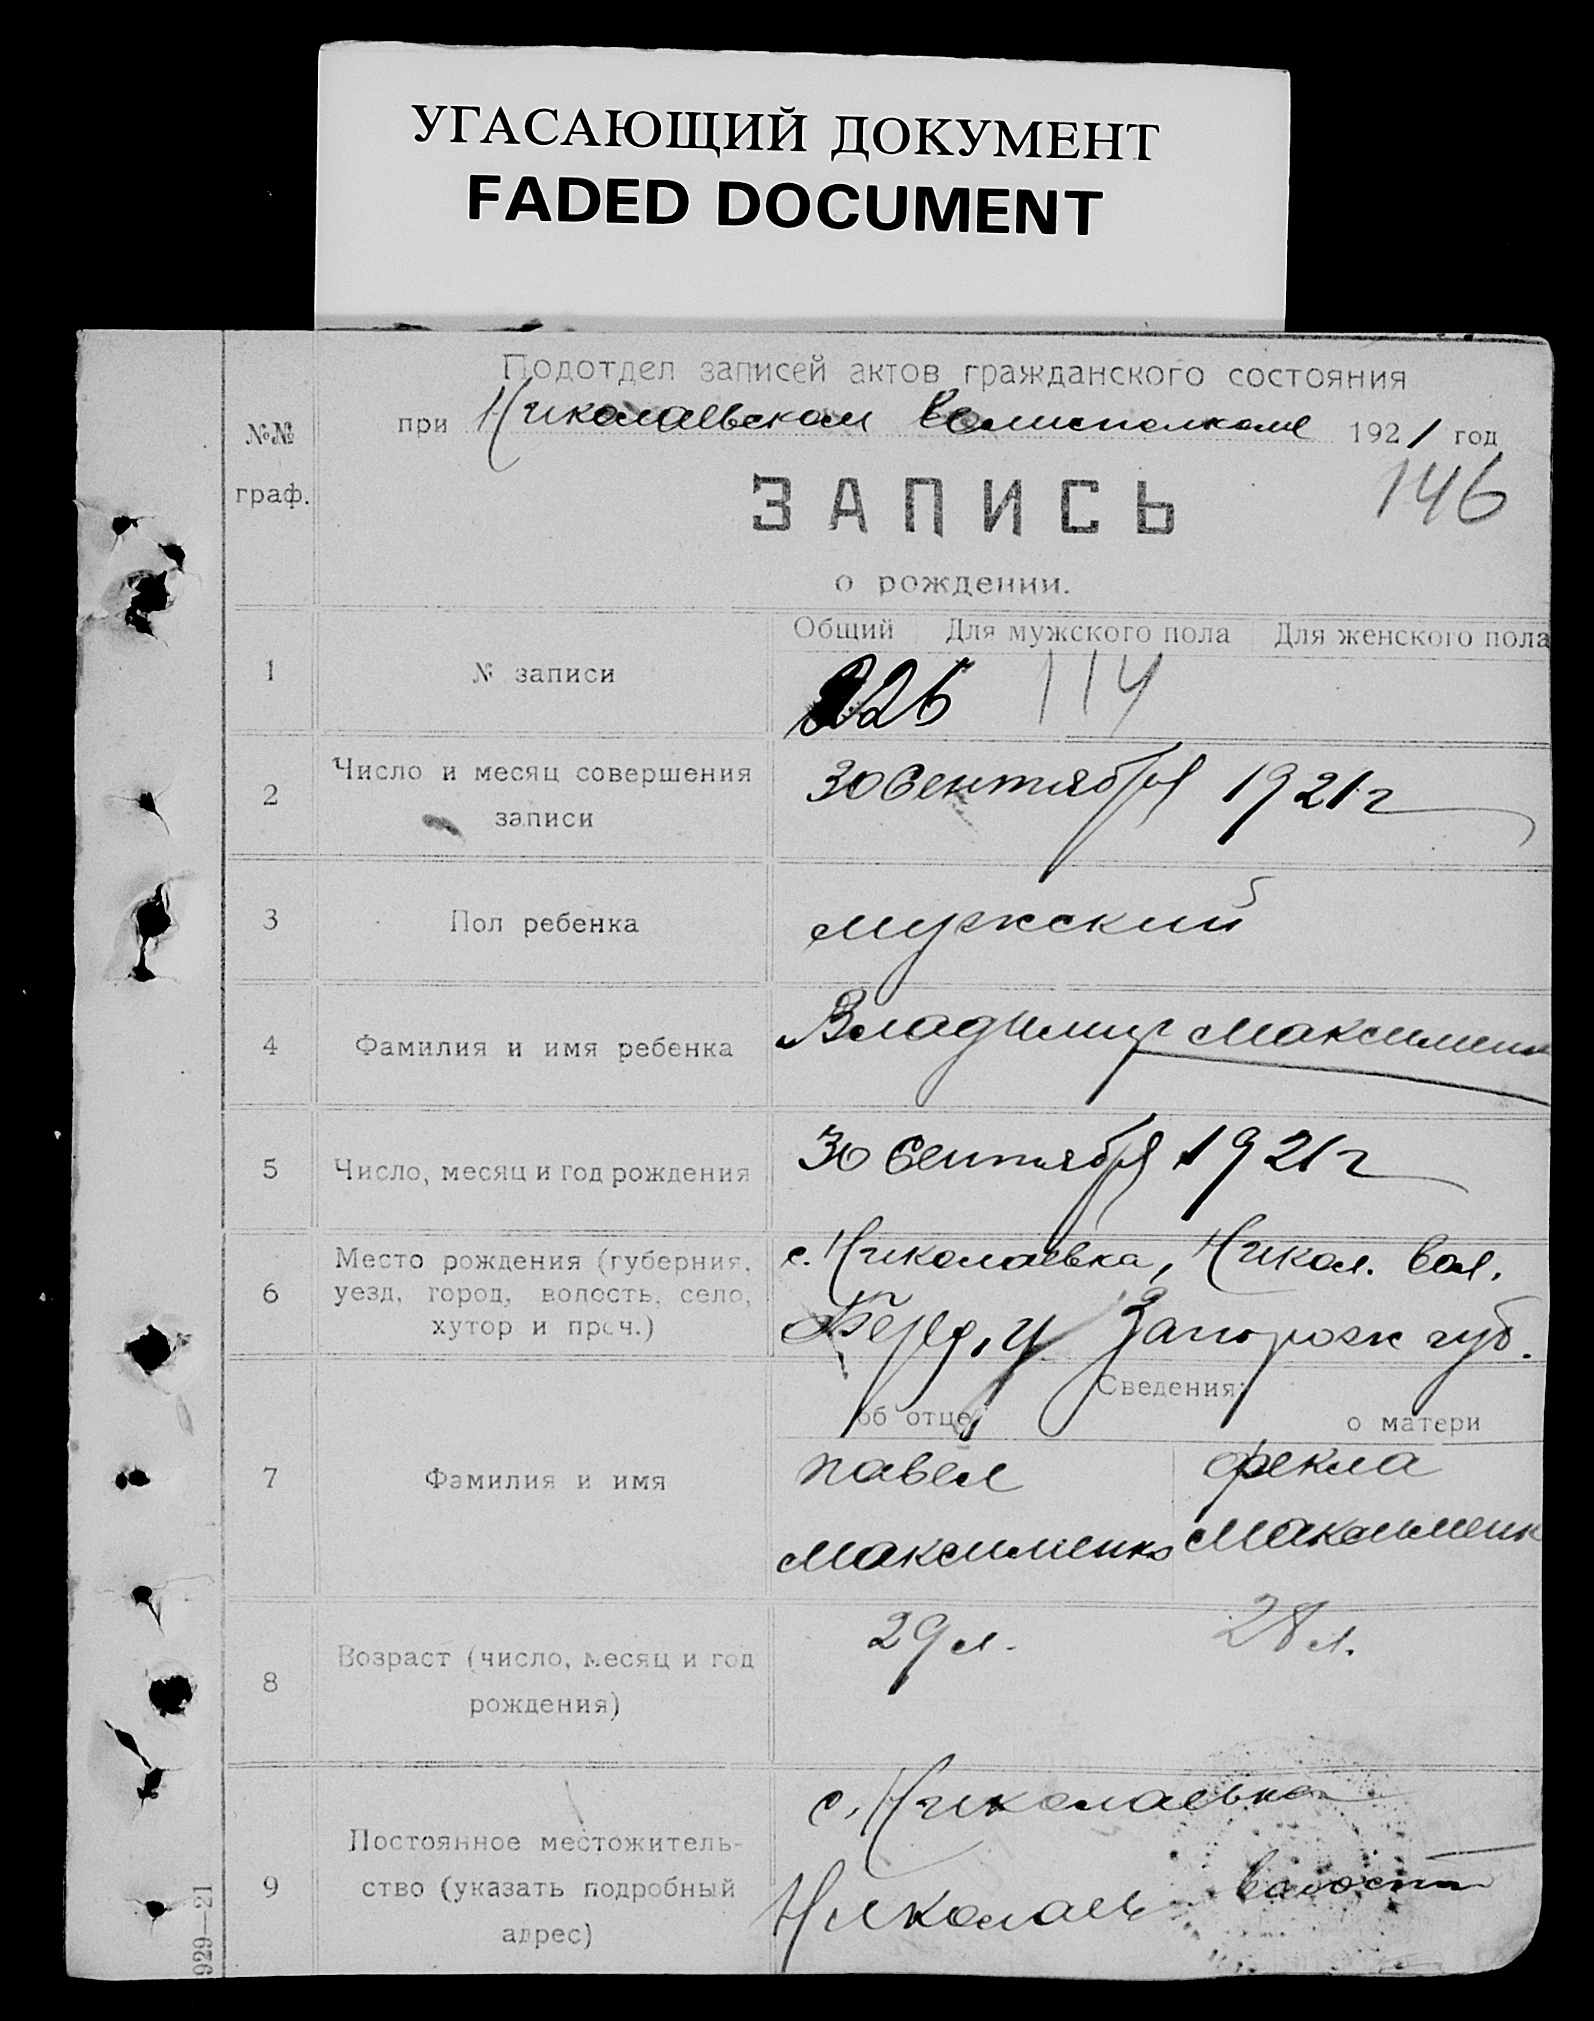 УГАСАЮЩИЙ ДОКУМЕНТ
FADED DOCUMENT
Подотдел записей актов гражданского состояния
при Николаевском Волисполкоме 1921 год
№№ граф.
146
ЗАПИСЬ
о рождении.
Общий Для мужского пола Для женского пола
1 № записи 226 114
2 Число и месяц совершения записи 30 Сентября 1921 г
3 Пол ребенка мужский
4 Фамилия и имя ребенка Владимир Максименк
5 Число, месяц и год рождения 30 Сентября 1921 г
6 Место рождения (губерния, с. Николаевка, Никол. вол.
уезд, город, волость, село, Берд. у Запорож губ.
хутор и проч.)
Сведения:
об отце о матери
7 Фамилия и имя Павел Фекла
Максименко Максименк
8 Возраст (число, месяц и год рождения) 29 л. 28 л.
9 Постоянное местожитель- с. Николаевка
ство (указать подробный Николаев волости
адрес)
929—21